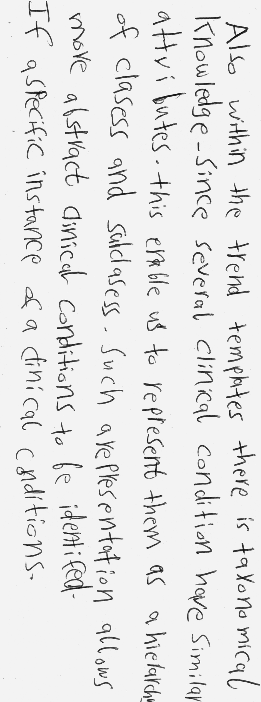 Also within the trend templates there is taxonomical
knowledge-since several clinical condition have similar
attributes. this enable us to represent them as a hierarchy
of clasess and subclasess. Such arepresentation allows
more abstract clinical conditions to be identifed.
If aspecific instance of a clinical cnditions.